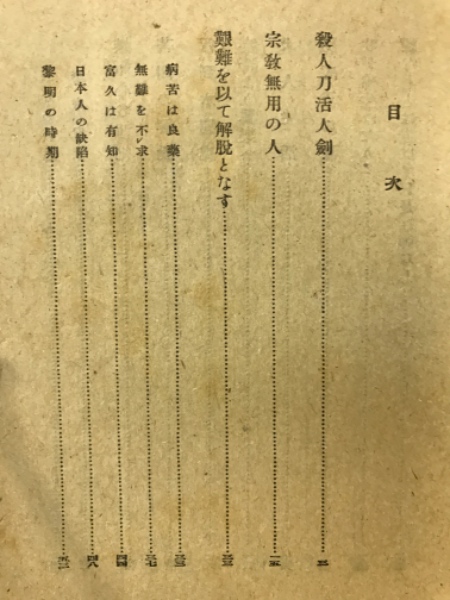 目次
殺人刀活人劍
宗教無用の人……一五
艱難を以て解脱となす
病苦は良藥
無難を不求
富久は有知……四四
日本人の缺陷……四八
黎明の時期